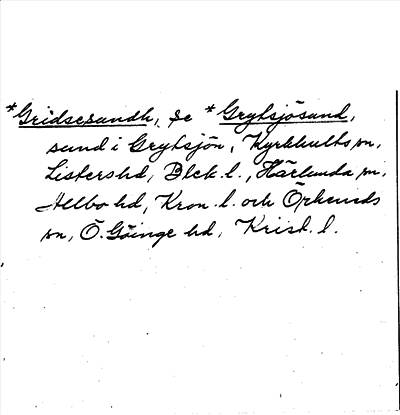 *Gridsesundh, se *Grytsjösund,
sund i Grytsjön, Kyrkhults sn,
Listers hd, Blek. l., Härlunda sn,
Allbo hd, Kron. l. och Örkeneds
sn, Ö. Göinge hd, Krist. l.